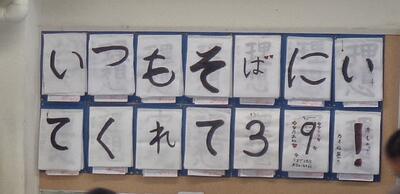 いつもそばにい
てくれて39!